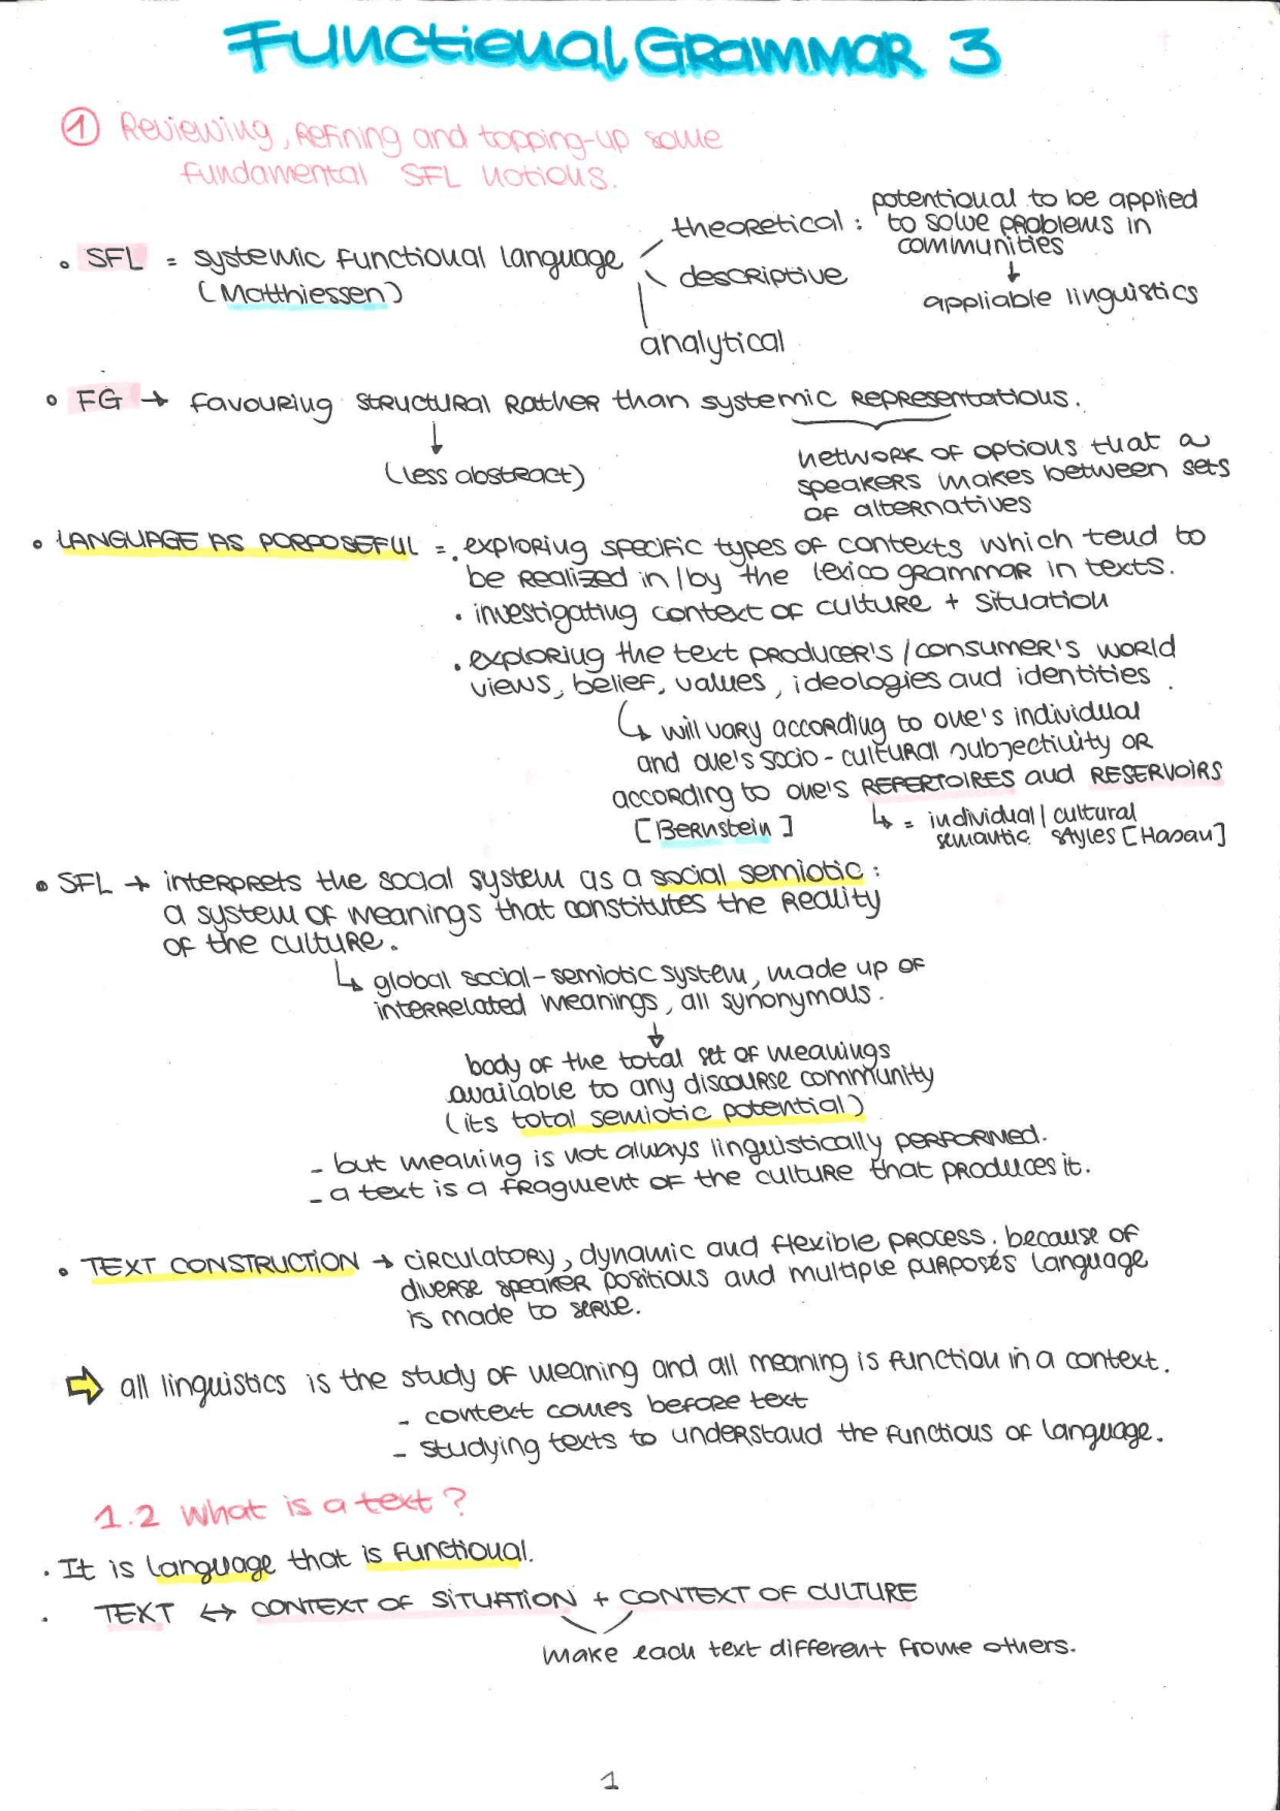 Functional Grammar 3
① Reviewing, Refining and topping-up some
fundamental SFL notions.
• SFL = systemic functional language
(Matthiessen)
theoretical: potentional to be applied
to solve problems in
communities
↓
appliable linguistics
descriptive
analytical
• FG → favouring structural rather than systemic representations.
↓
(less abstract)
network of options that a
speakers makes between sets
of alternatives
• LANGUAGE AS PORPOSEFUL = . exploring specific types of contexts which tend to
be realized in/by the lexico grammar in texts.
• investigating context of culture + situation
• exploring the text producer's/consumer's world
views, belief, values, ideologies and identities.
↳ will vary according to one's individual
and one's socio-cultural subjectivity OR
according to one's REPERTOIRES and RESERVOIRS
[Bernstein]
↳ = individual/cultural
semantic styles [Hasan]
• SFL → interprets the social system as a social semiotic:
a system of meanings that constitutes the reality
of the culture.
↳ global social-semiotic system, made up of
interrelated meanings, all synonymous.
↓
body of the total set of meanings
available to any discourse community
(its total semiotic potential)
- but meaning is not always linguistically performed.
- a text is a fragment of the culture that produces it.
• TEXT CONSTRUCTION → circulatory, dynamic and flexible process. because of
diverse speaker positions and multiple purposes language
is made to serve.
⇨ all linguistics is the study of meaning and all meaning is function in a context.
- context comes before text
- studying texts to understand the functions of language.
1.2 What is a text?
• It is language that is functional.
• TEXT ↔ CONTEXT OF SITUATION + CONTEXT OF CULTURE
make each text different frome others.
1